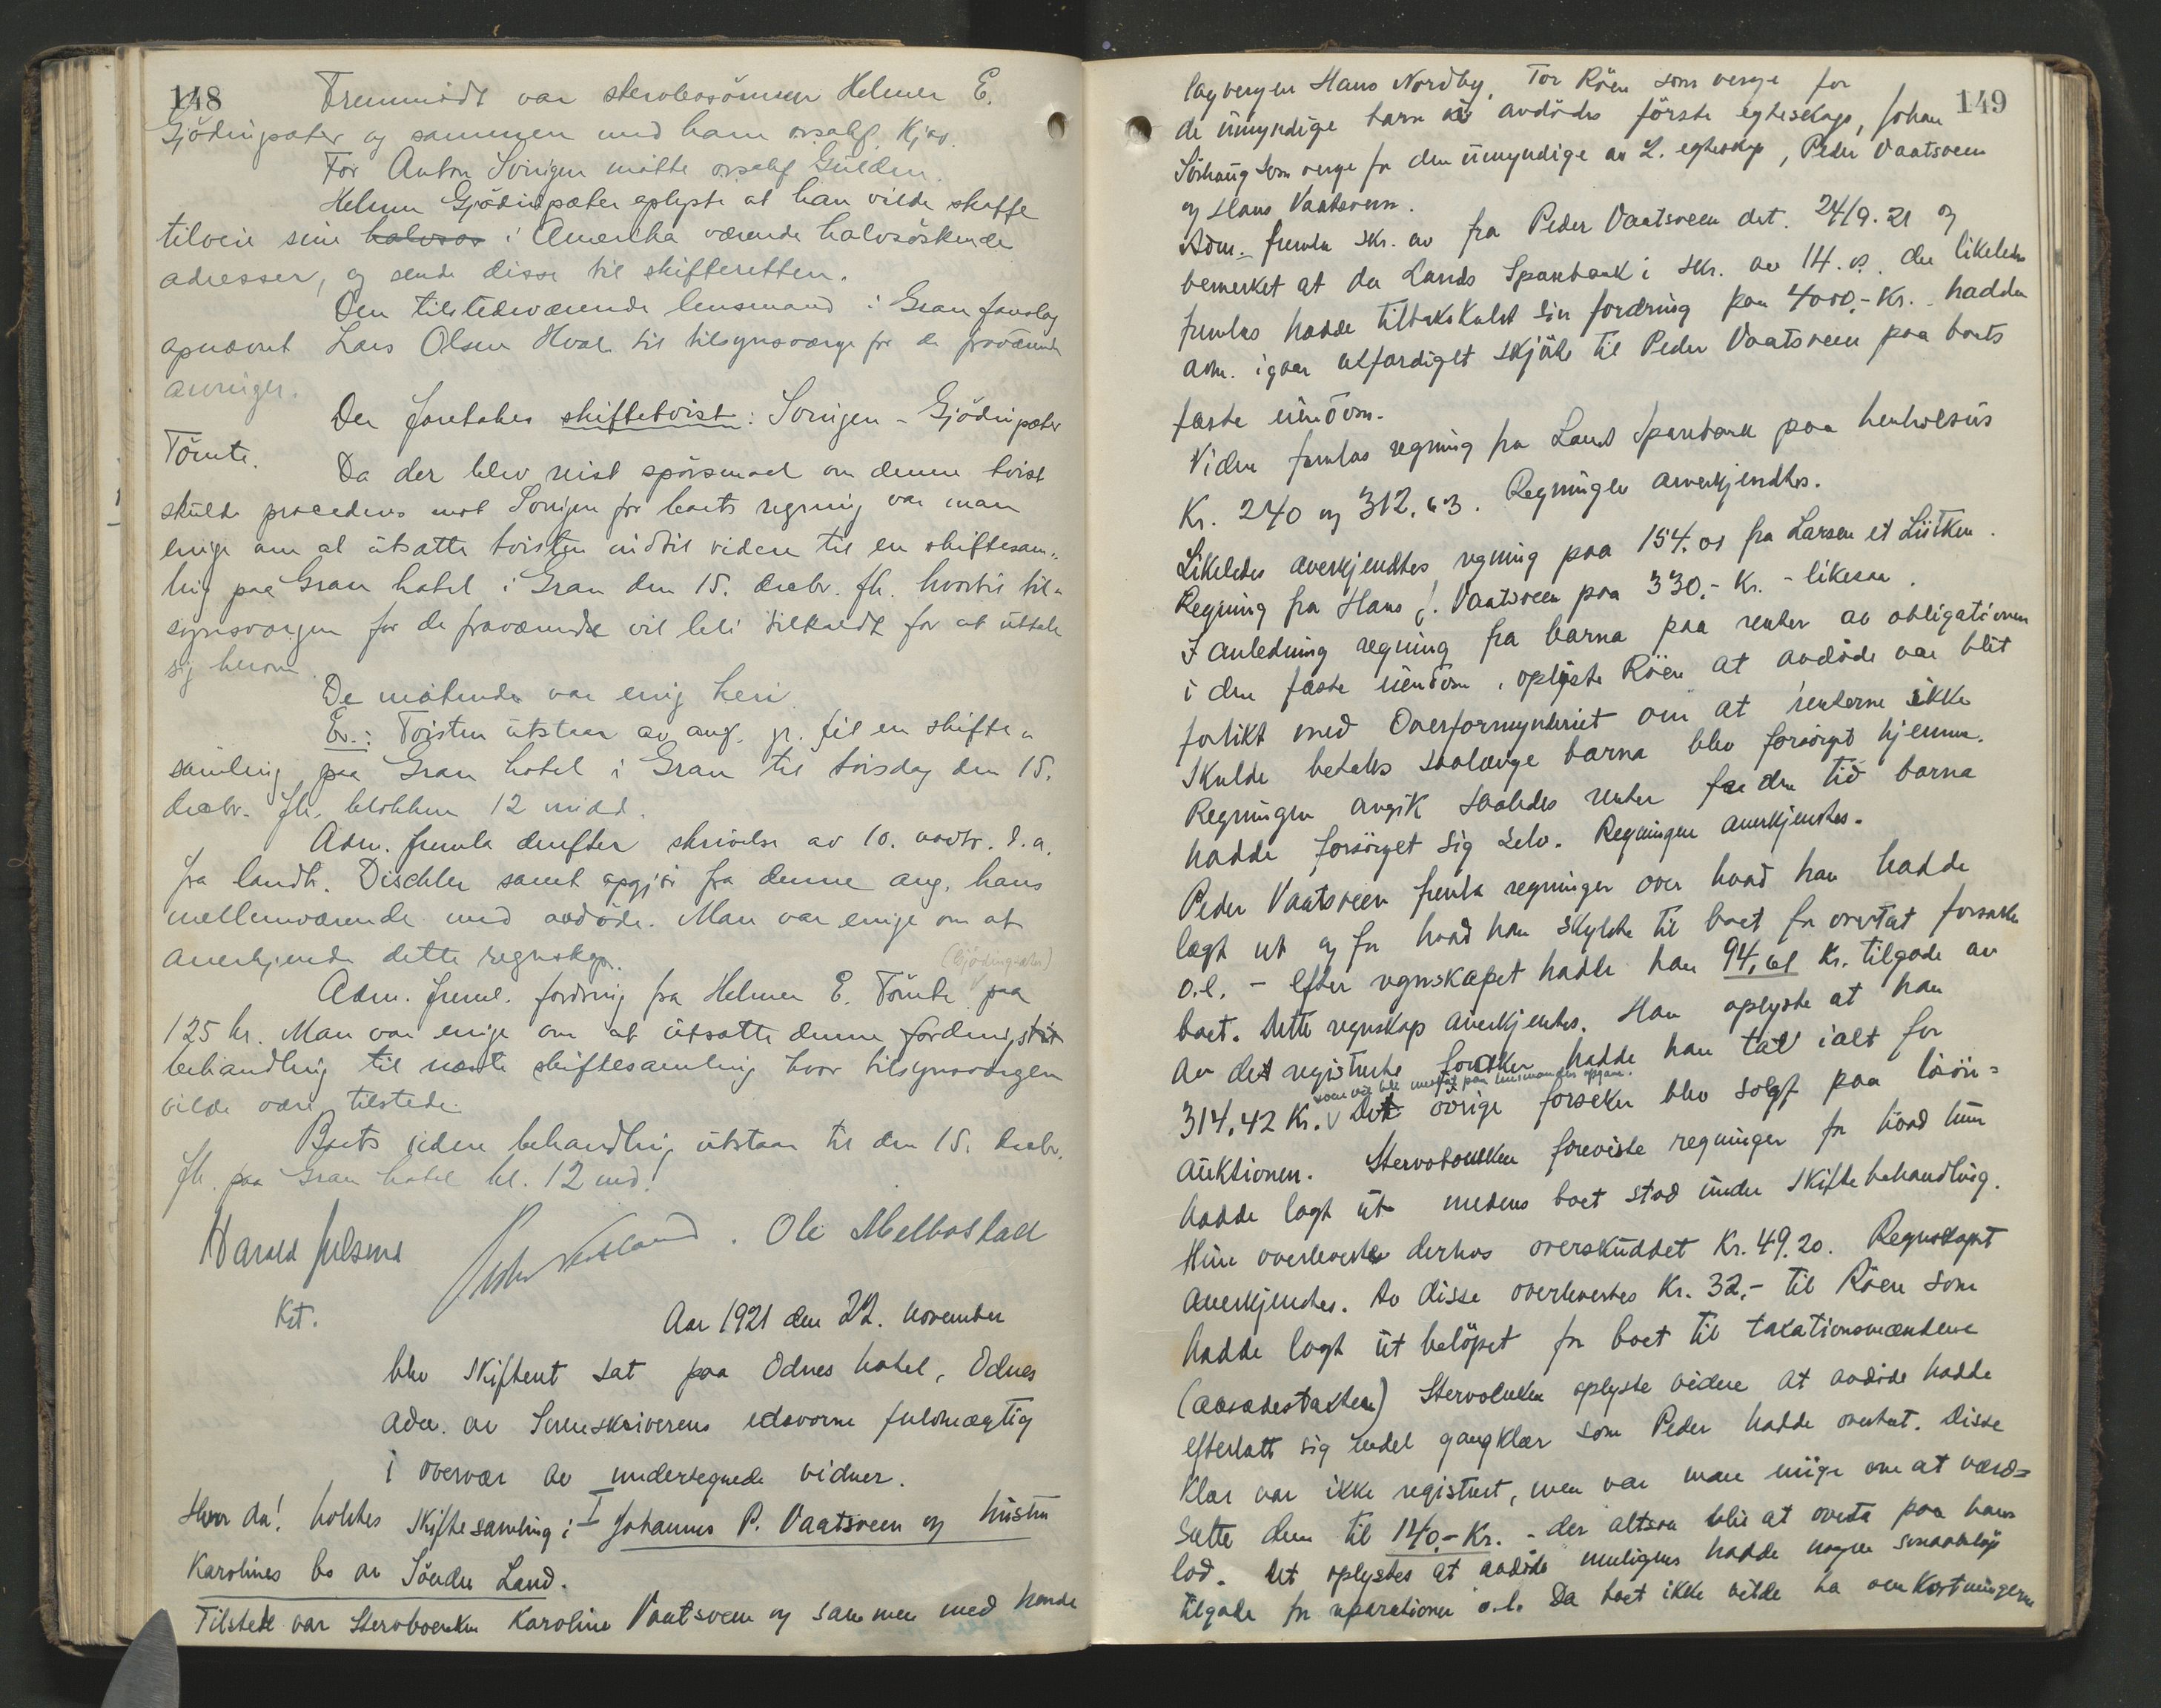 148
Fremmødt var stervbosönnen Helmer E.
Gjödingsæter og sammen med ham orsakf. Kjær.
For Anton Svingen mötte orsakf Gulden.
Helmer Gjödingsæter oplyste at han vilde skaffe
tilveie sine halvsös i Amerika værende halvsöskendes
adresser, og sende disse til skifteretten.
Den tilstedeværende lensmand i Gran foreslog
opnævnt Lars Olsen Hval til tilsynsværge for de fraværende
arvinger.
Der foretokes skiftetvist: Svingen - Gjödingsæter
Tömte.
Da der blev reist spörsmaal om denne tvist
skulde procederes mot Svingen for boets regning var man
enige om at utsætte tvisten indtil videre til en skiftesam-
ling paa Gran hotel i Gran den 15. decbr. fk. hvortil til-
synsværgen for de fraværende vil bli tilkaldt for at uttale
sig herom.
De mötende var enig heri
Ev.: Tvisten utstaar av anf. gr. til en skifte-
samling paa Gran hotel i Gran til torsdag den 15.
decbr. fk. klokken 12 midd.
Adm. fremla derefter skrivelse av 10. novbr. d. a.
fra landh. Dischler samt opgjör fra denne ang. hans
mellemværende med avdöde. Man var enige om at
anerkjende dette regnskap.
(Gjödingsæter)
Adm. freml. fordring fra Helmer E. Tömte paa
125 kr. Man var enige om at utsætte denne fordrings
behandling til næste skiftesamling hvor tilsynsværgen
vilde være tilstede.
Boets videre behandling utstaar til den 15. decbr.
fk. paa Gran hotel kl. 12 md!
Harald Julsrud
Ole Melbostad
Kst.
Aar 1921 den 22. november
blev skifteret sat paa Odnes hotel, Odnes
adm. av Sorenskriverens edsvorne fuldmægtig
i overvær av undertegnede vidner.
Hvor da! holdtes skiftesamling i I Johannes P. Vaatsveen og hustru
Karolines bo av Söndre Land.
Tilstede var Stervboenken Karoline Vaatsveen og sammen med hende
149
lagvergen Hans Nordby, Tor Röen som verge for
de umyndige barn av avdödes förste egteskap, Johan
Sörhaug som verge for den umyndige av 2. egteskap, Peder Vaatsveen
og Hans Vaatsveen.
Adm. fremla skr. av fra Peder Vaatsveen dat. 24/9. 21 og
bemerket at da Lands Sparebank i skr. av 14. ds. der likeledes
fremlas hadde tilbakekaldt sin fordring paa 4000,- Kr. hadde
adm. igaar utfærdiget skjöte til Peder Vaatsveen paa boets
faste eiendom.
Videre fremlas regning fra Land Sparebank paa henholdsvis
Kr. 240 og 312.63. Regningen anerkjendtes.
Likeledes anerkjendtes regning paa 154.01 fra Larsen et Lütken.
Regning fra Hans J. Vaatsveen paa 330,- Kr. - likesaa.
I anledning regning fra barna paa renter av obligationen
i den faste eiendom, oplyste Röen at avdöde var blit
forlikt med Overformynderiet om at renterne ikke
skulde betales saalænge barna blev forsörget hjemme.
Regningen angik saaledes renter for den tid barna
hadde forsörget sig selv. Regningen anerkjendtes.
Peder Vaatsveen fremla regninger over hvad han hadde
lagt ut og for hvad han skyldte til boet for overtat forsake
o.l. - Efter regnskapet hadde han 94,61 Kr. tilgode av
boet. Dette regnskap anerkjendtes. Han oplyste at han
av det registrerte hadde han tat ialt for
som vil bli medtat paa lensmandens opgave.
314,42 Kr. Det övrige blev solgt paa löün=
auktionen. Stervboenken foreviste regninger for hvad hun
hadde lagt ut medens boet stod under skiftebehandling.
Hun overleverte derhos overskuddet Kr. 49.20. Regnskapet
anerkjendtes. Av disse overleverte Kr. 32,- til Röen som
hadde lagt ut belöpet for boet til taxationsmændene
(aasædestakten) Stervboenken oplyste videre at avdöde hadde
efterlatt sig endel gangklær som Peder hadde overtat. Disse
klær var ikke registrert, men var man enige om at værd=
sætte dem til 140,- Kr. - der altsaa blir at overta paa hans
lod. Det oplystes at avdöde muligens hadde nogen smaabelöp
tilgode for reparationer o.l. Da boet ikke vilde ha omkostningerne